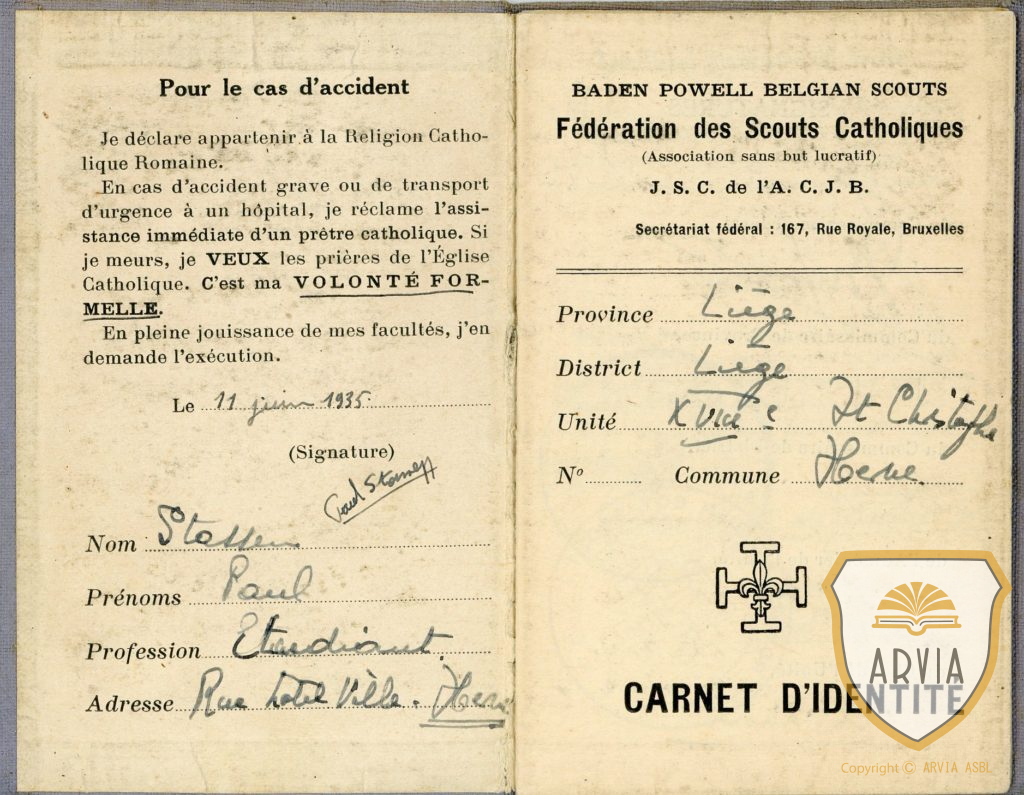 Pour le cas d'accident
Je déclare appartenir à la Religion Catho-
lique Romaine.
En cas d'accident grave ou de transport
d'urgence à un hôpital, je réclame l'assi-
stance immédiate d'un prêtre catholique. Si
je meurs, je VEUX les prières de l'Église
Catholique. C'est ma VOLONTÉ FOR-
MELLE.
En pleine jouissance de mes facultés, j'en
demande l'exécution.
Le 11 juin 1935
(Signature)
Paul Stassen
Nom Stassen
Prénoms Paul
Profession Etudiant.
Adresse Rue hotel Ville. Herve
BADEN POWELL BELGIAN SCOUTS
Fédération des Scouts Catholiques
(Association sans but lucratif)
J. S. C. de l'A. C. J. B.
Secrétariat fédéral : 167, Rue Royale, Bruxelles
Province Liège
District Liège
Unité XVIIIe St Christophe
No Commune Herve.
CARNET D'IDENTITÉ
ARVIA
Copyright © ARVIA ASBL